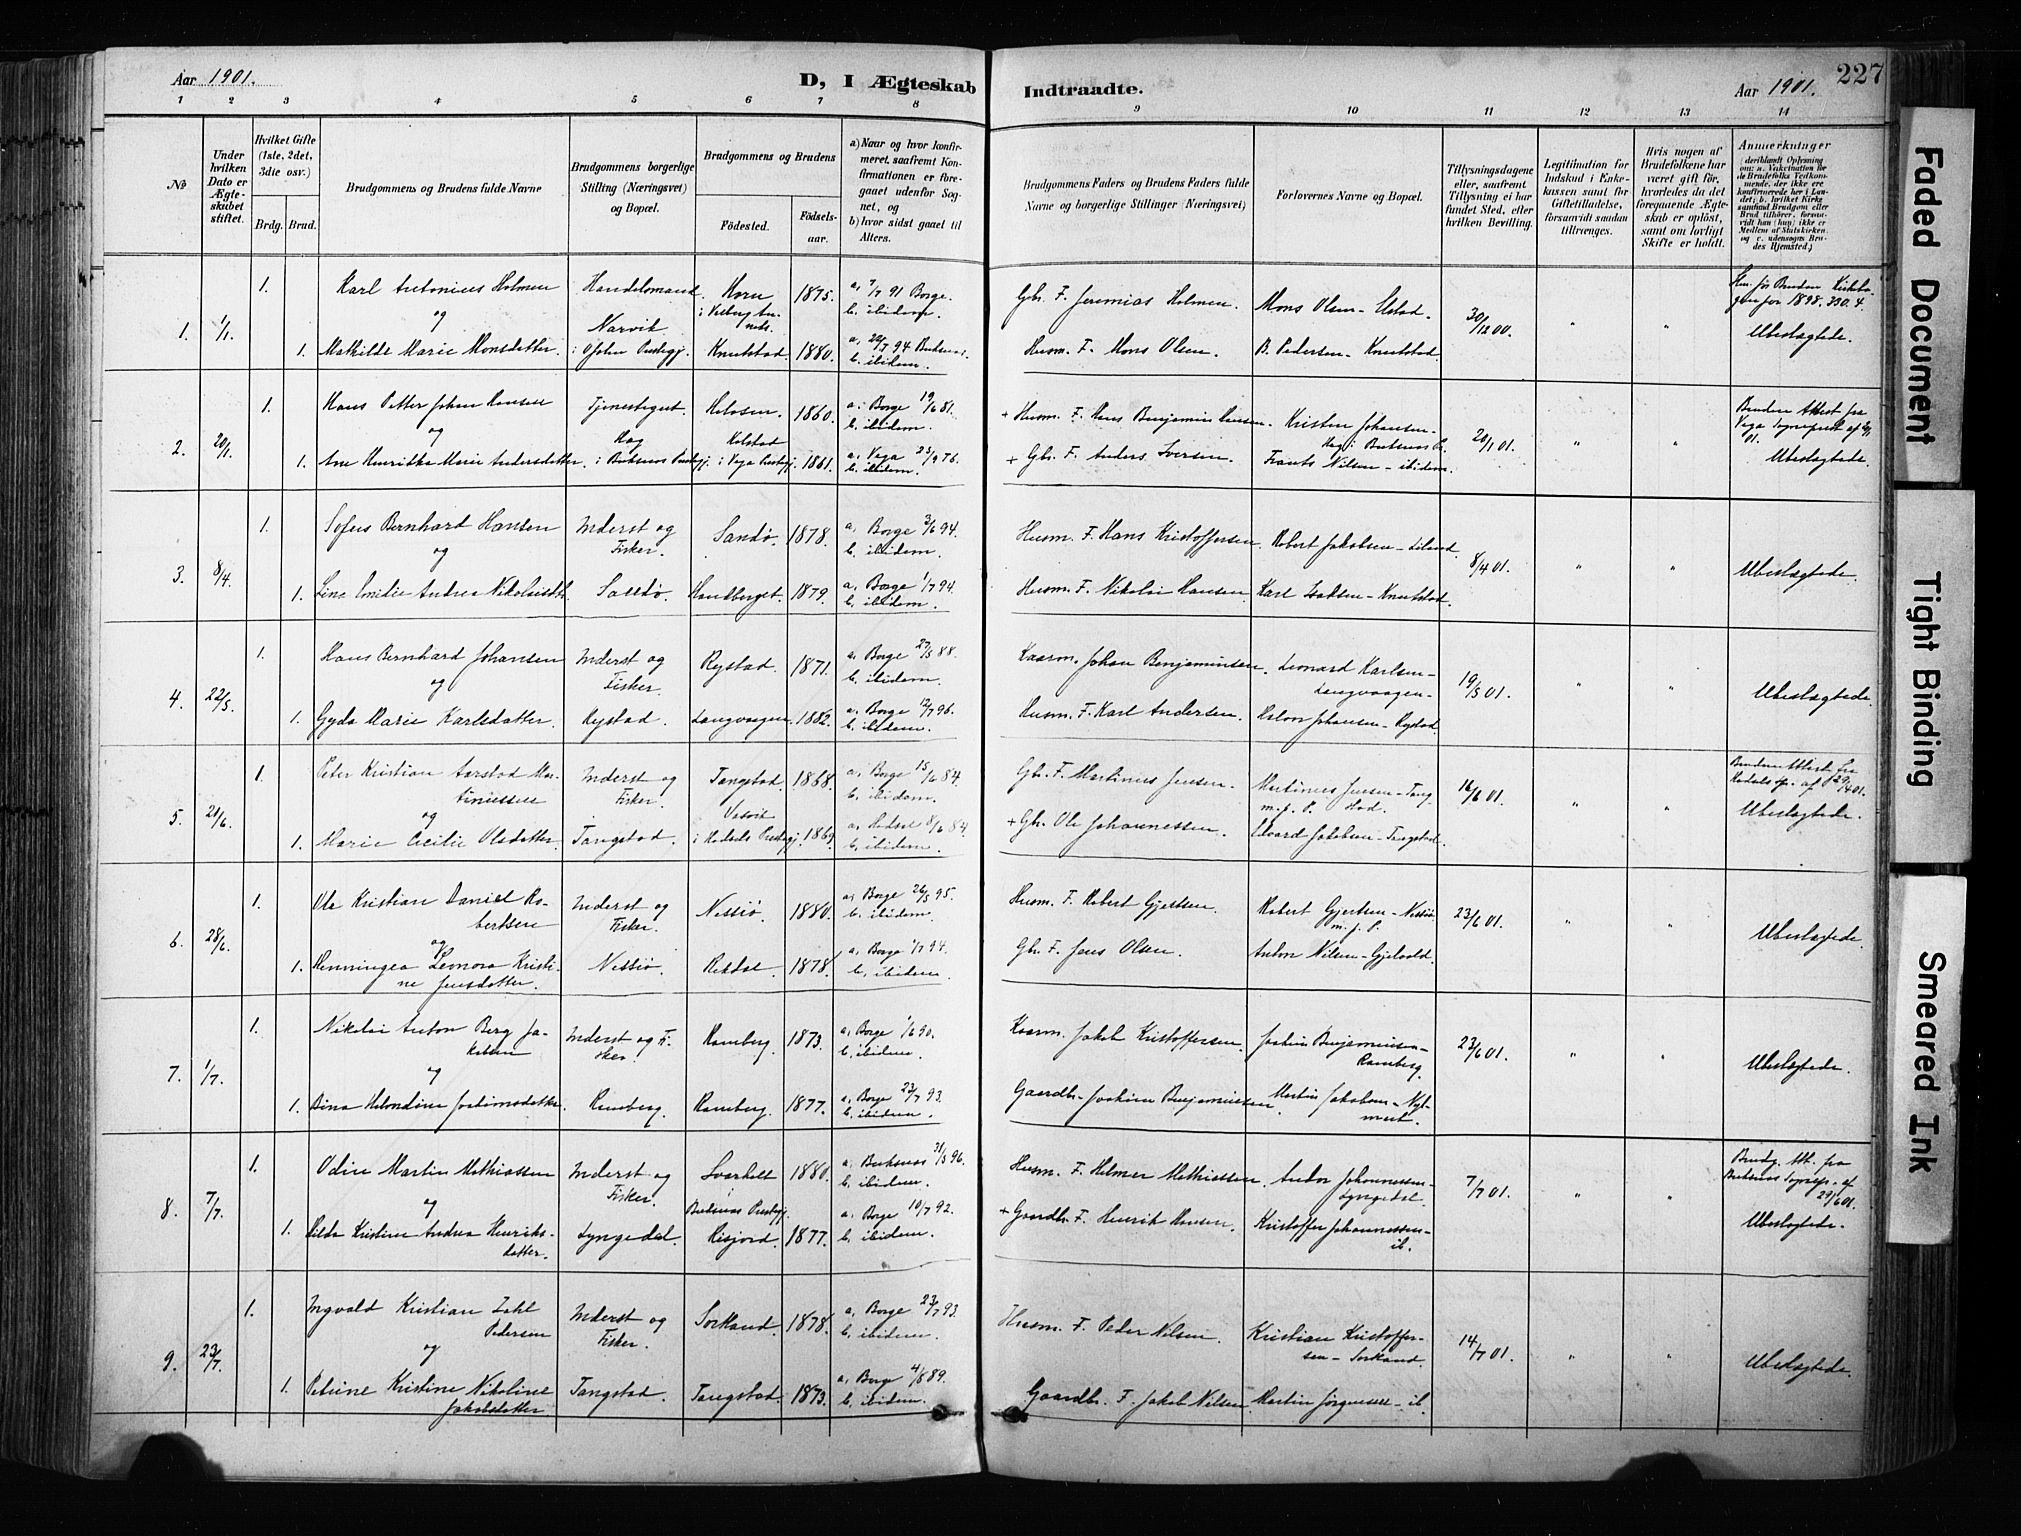 Aar 1901.
D, I Ægteskab
Indtraadte.
Aar 1901.
227
1 2 3 4 5 6 7 8 9 10 11 12 13 14
№
Under hvilken Dato er Ægteskabet stiftet.
Hvilket Gifte (1ste, 2det, 3die osv.)
Brdg. Brud.
Brudgommens og Brudens fulde Navne
Brudgommens borgerlige Stilling (Næringsvei) og Bopæl.
Brudgommens og Brudens
Fødested. Fødselsaar.
a) Naar og hvor konfirmeret, saafremt Konfirmationen er foregaaet udenfor Sognet, og
b) hvor sidst gaaet til Alters.
Brudgommens Faders og Brudens Faders fulde Navne og borgerlige Stillinger (Næringsvei)
Forlovernes Navne og Bopæl.
Tillysningsdagene eller, saafremt Tillysning ei har fundet Sted, efter hvilken Bevilling.
Legitimation for Indskud i Enkekassen samt for Giftetilladelse, forsaavidt saadan tiltrænges.
Hvis nogen af Brudefolkene har været gift før, hvorledes da det foregaaende Ægteskab er opløst, samt om lovligt Skifte er holdt.
Anmerkninger
1. 1/1.
1. Karl Antonius Holmen Handelsmand. Horn 1875. a, 7/7 91 Borge.
og Narvik b. ibidem.
1. Mathilde Marie Monsdatter. i Ofoten Prestegj. Knutstad. 1880. a, 22/7 94 Buksnes.
b. ibidem.
Gbr. F. Jeremias Holmen. Mons Olsen - Ustad. 30/12 00. " "
Husm. F. Mons Olsen. B. Pedersen - Knutstad. Ubeslægtede.
2. 20/1.
1. Hans Petter Johan Hansen Tjenestegut. 1860. a. Borge 19/6 81.
og Hag Kolstad b. ibidem.
1. Ane Henrikka Marie Andersdatter. i Buksnes Prestegj. i Vega Prestegj. 1861. a. Vega 23/9 76.
b. ibidem.
+ Husm. F. Hans Benjamin Hansen. Kristen Johansen - Hag i Buksnes 20/1 01. " "
+ Gbr. F. Anders Iversen. Frants Nilsen - ibidem. Brudens Attest fra Vega Sogneprest
Ubeslægtede.
3. 8/4.
1. Sofus Bernhard Hansen Inderst og Fisker. Sandø. 1878. a, Borge 3/6 94.
og b. ibidem.
1. Line Emilie Andrea Nikolaisdtr. Sandø. 1879. a, Borge 1/7 94.
b. ibidem.
Husm. F. Hans Kristoffersen. Robert Jakobsen - Liland. 8/4 01. " "
Husm. F. Nikolai Hansen. Karl Isaksen - Knutstad. Ubeslægtede.
4. 22/5.
1. Hans Bernhard Johansen Inderst og Fisker. Rystad. 1871. a. Borge 27/5 88.
og b. ibidem.
1. Gyda Marie Karlsdatter. Rystad. Langvaagen. 1882. a. Borge 12/7 96.
b. ibidem.
Kaarm. Johan Benjaminsen. Leonard Karlsen - Langvaagen - 19/5 01. " "
Husm. F. Karl Andersen. Johansen - Rystad Ubeslægtede.
5. 21/6.
1. Peter Kristian Aarstad Martinussen Inderst og Fisker. Tangstad. 1868. a, Borge 15/6 84.
og b. ibidem.
1. Marie Cecilie Olsdatter. Tangstad. i Hadsels Prestegj. 1869. a, Hadsel 8/6 84.
b. ibidem.
Gbr. F. Martinus Jensen. Martinus Jensen - Tangstad. 16/6 01. " "
+ Gbr. Ole Johannessen. Edvard Jakobsen - Tangstad. Brudens Attest fra Hadsels Sp. af 29/4 01.
Ubeslægtede.
6. 28/6.
1. Ole Kristian Daniel Robertsen Inderst og Fisker. Nessiø. 1880. a, Borge 26/5 95.
og b. ibidem.
1. Henningea Leonora Kristine Jensdatter. Nessiø. Resdal. 1878. a, Borge 1/7 94.
b. ibidem.
Husm. F. Robert Gjertsen. Robert Gjertsen - Nessiø 23/6 01. " "
Gbr. F. Jens Olsen. Anton Nilsen - Gjelvold. Ubeslægtede.
7. 1/7.
1. Nikolai Anton Berg Jakobsen Inderst og Fisker. Ramberg. 1873. a, Borge 1/6 90.
og b. ibidem.
1. Bina Helondine Joakimsdatter. Ramberg. Ramberg. 1877. a, Borge 23/7 93.
b. ibidem.
Kaarm. Jakob Kristoffersen. Joakim Benjaminsen - Ramberg. 23/6 01. " "
Gaardbr. Joakim Benjaminsen Martin Jakobsen - Ubeslægtede.
8. 7/7.
1. Odin Martin Mathiassen Inderst og Fisker. Svarholt 1880. a. Buksnes 31/5 96.
og Buksnes Prestegj. b. ibidem.
1. Hilda Kristine Andrea Henriksdatter. Lyngedal. Risjord. 1877. a. Borge 10/7 92.
b. ibidem.
Husm. F. Helmer Mathiassen. Andor Johannessen - Lyngedal. 7/7 01. " "
+ Gaardbr. F. Henrik Hansen. Kristoffer Johannessen - ib. Brudg. Att. fra Buksnes Sognepr. af 29/6 01.
Ubeslægtede.
9. 23/7.
1. Ingvald Kristian Zahl Pedersen Inderst og Fisker. Sorkand. 1878. a, Borge 23/7 93.
og b. ibidem.
1. Petrine Kristine Nikoline Jakobsdatter Tangstad. Tangstad. 1873. a, Borge 4/8 89.
b. ibidem.
Husm. F. Peder Nilsen. Kristian Kristoffersen - Sorkand. 14/7 01. " "
Gaardbr. F. Jakob Nilsen. Martin Jørgensen - ib. Ubeslægtede.
Faded Document
Tight Binding
Smeared Ink